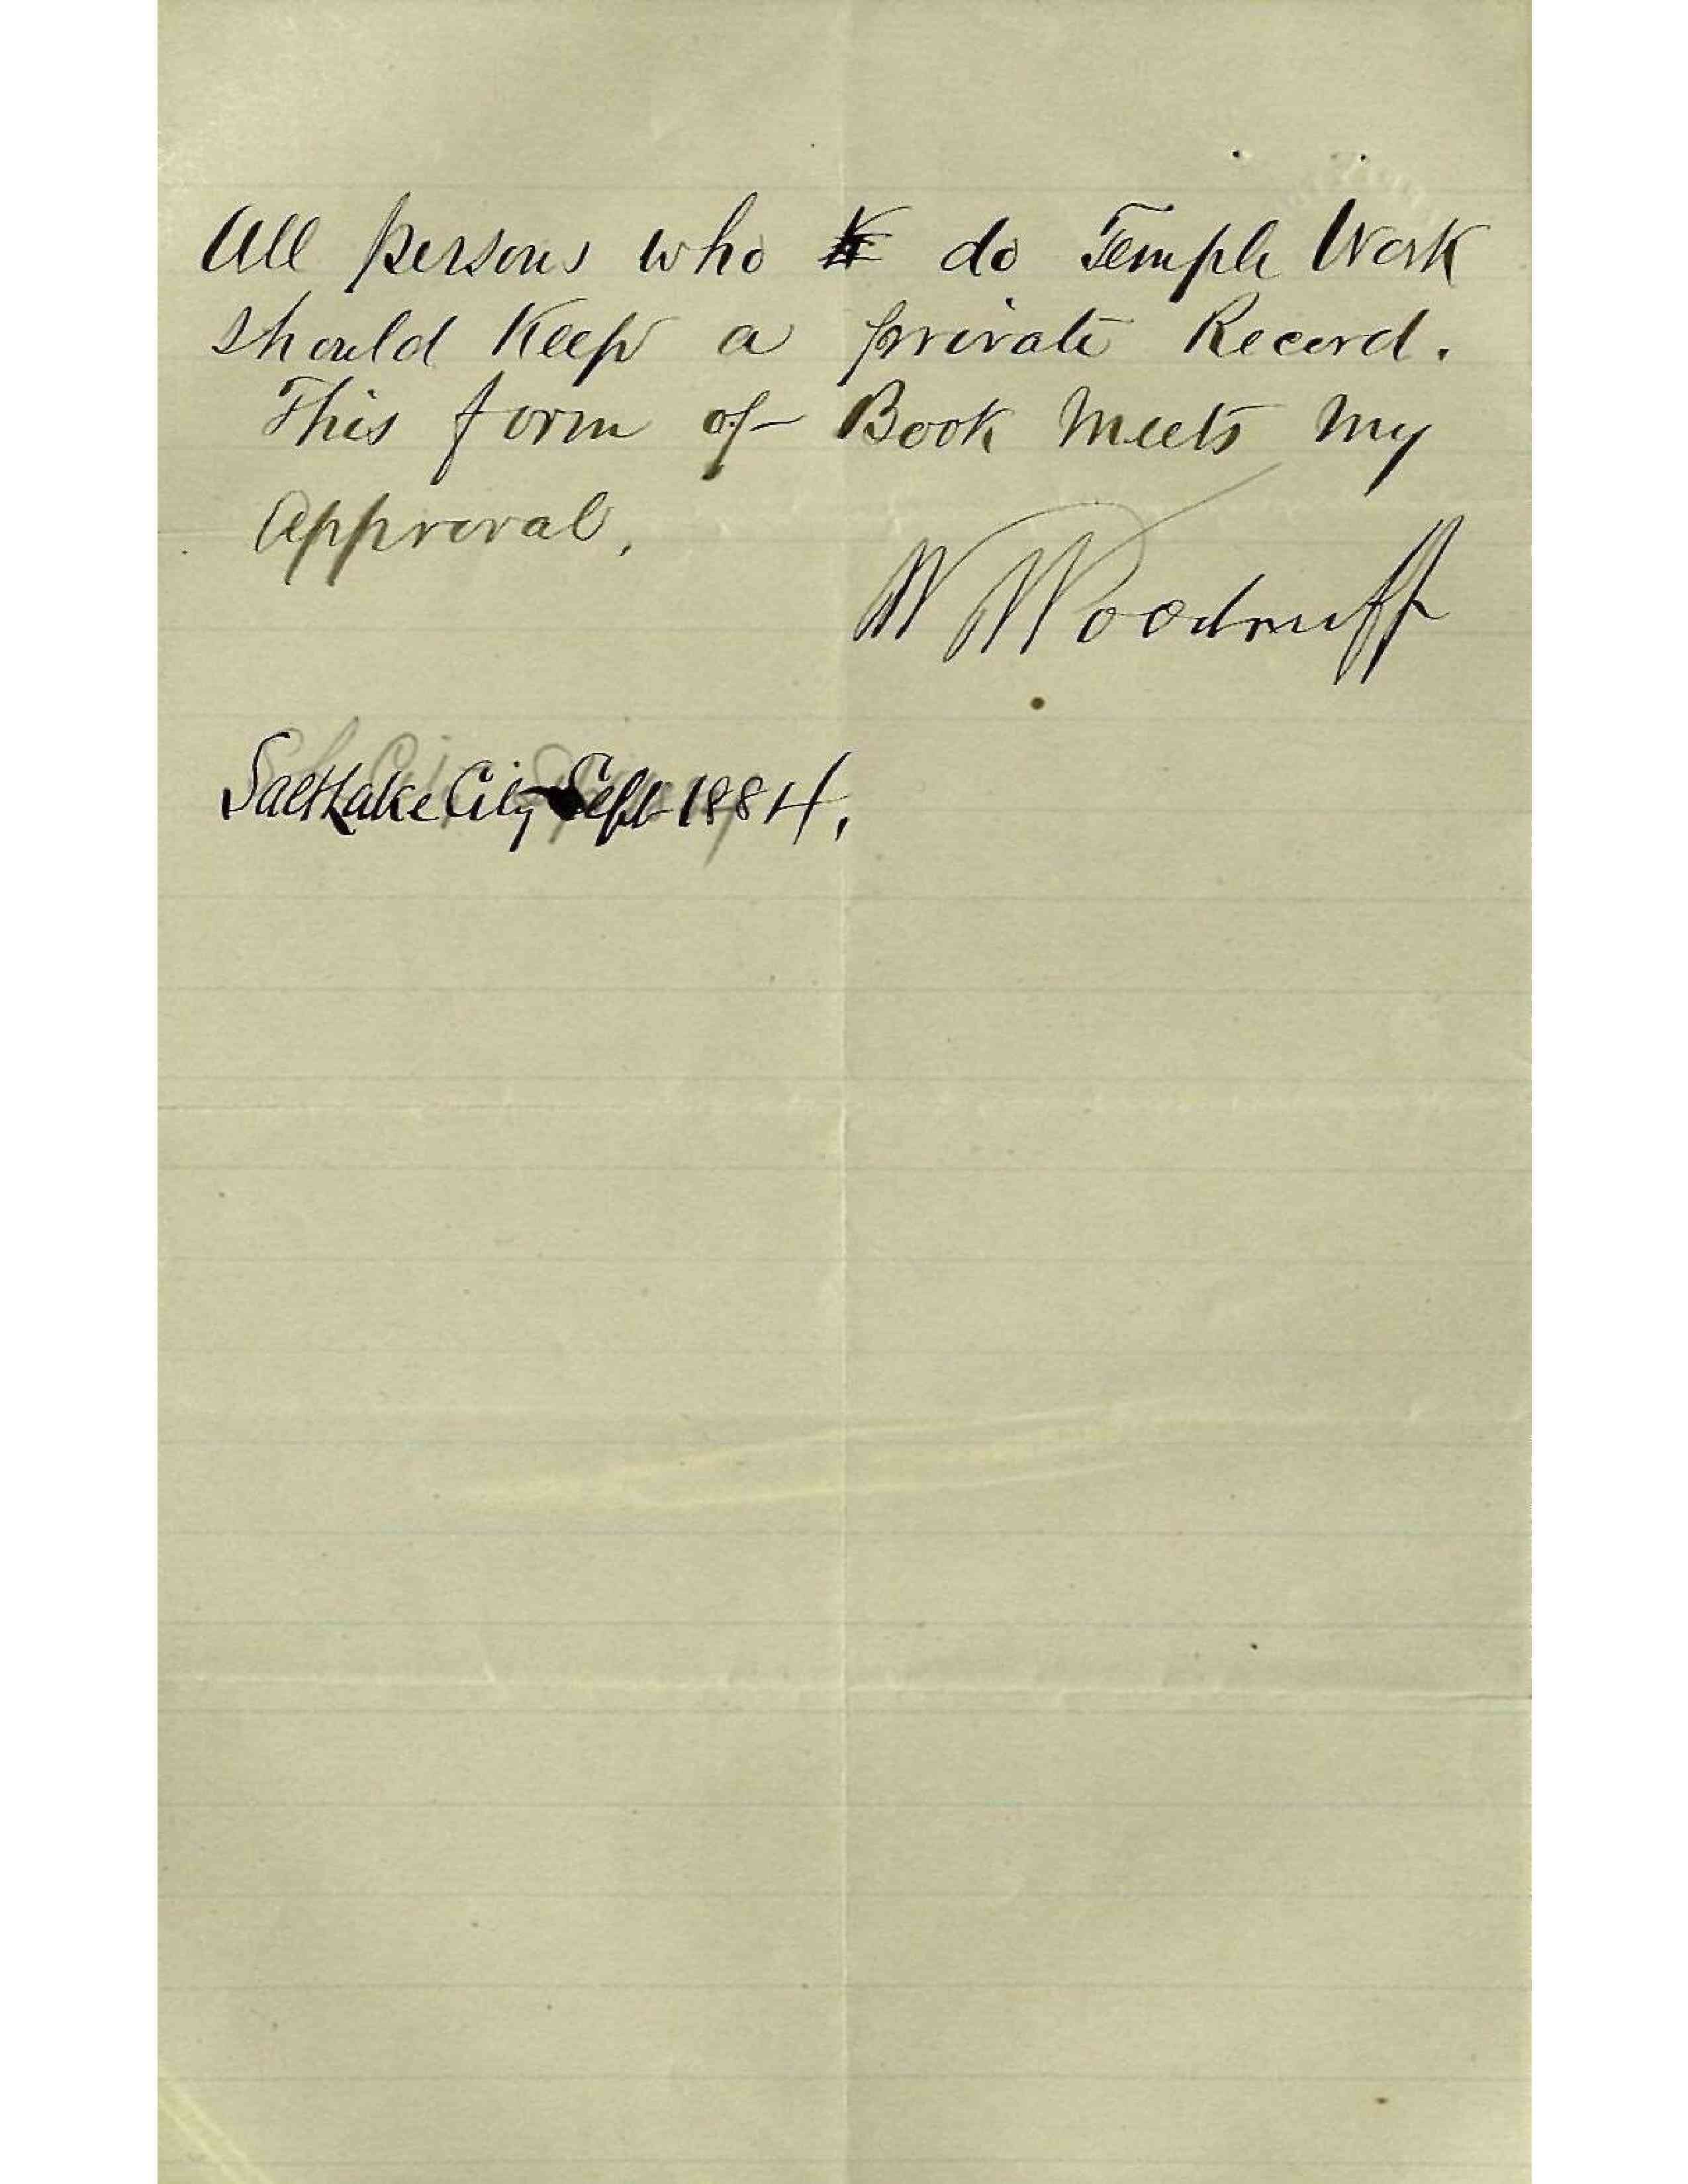 All persons who do Temple Work
should Keep a private Record.
This form of Book Meets My
Approval,
W Woodruff
Salt Lake City Sept 1884,